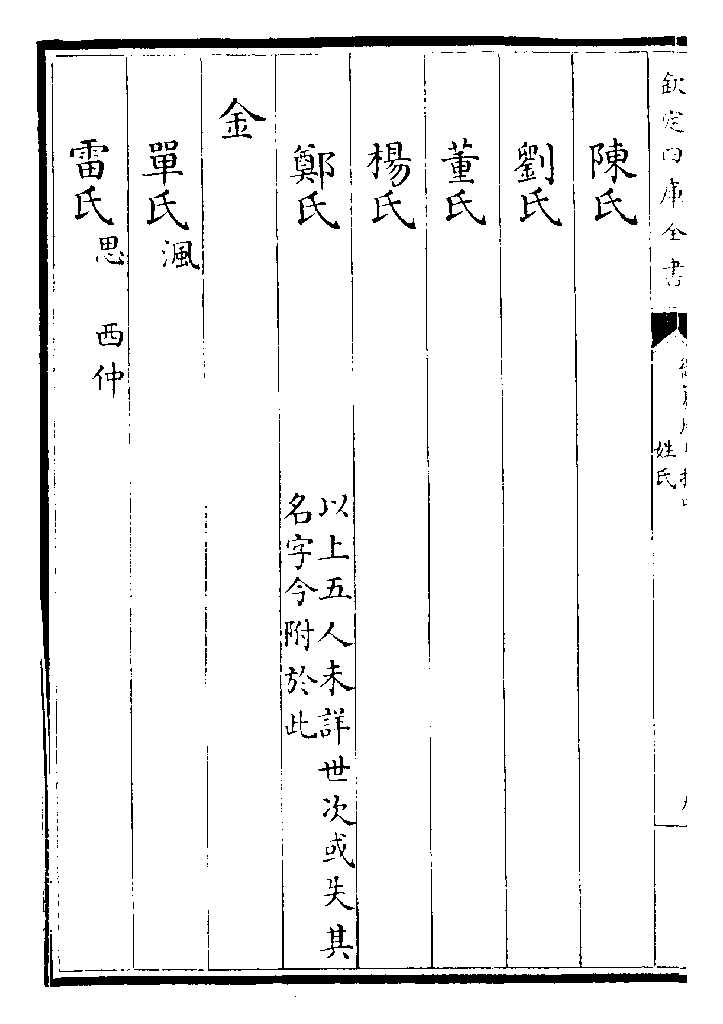 欽定四庫全書
姓氏
陳氏
劉氏
董氏
楊氏
鄭氏 以上五人未詳世次或失其
名字今附於此
金
單氏渢
雷氏思 西仲